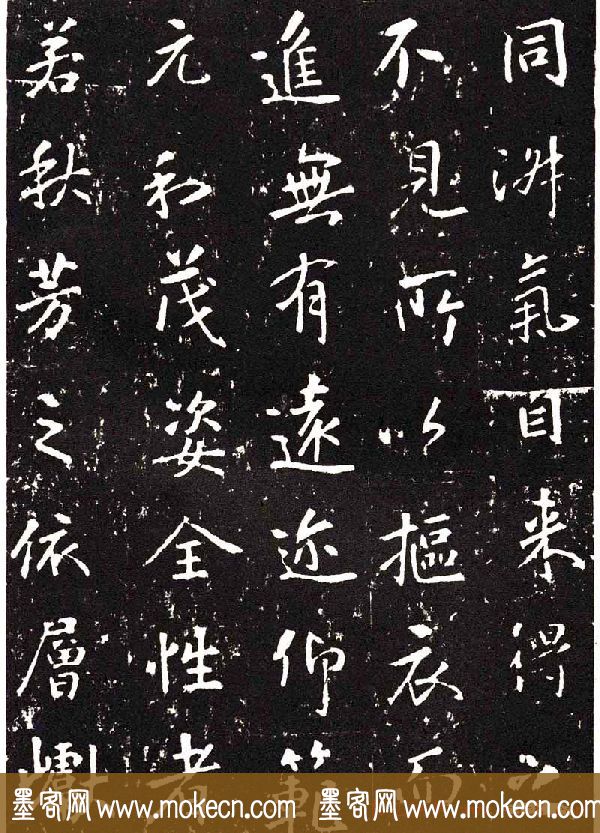 同氣目来得
不見所以摳衣而
進無有遠迩仰範
元和茂姿全性者
若秋芳之依層
墨客网 www.mokecn.com 墨客网 www.mokecn.com